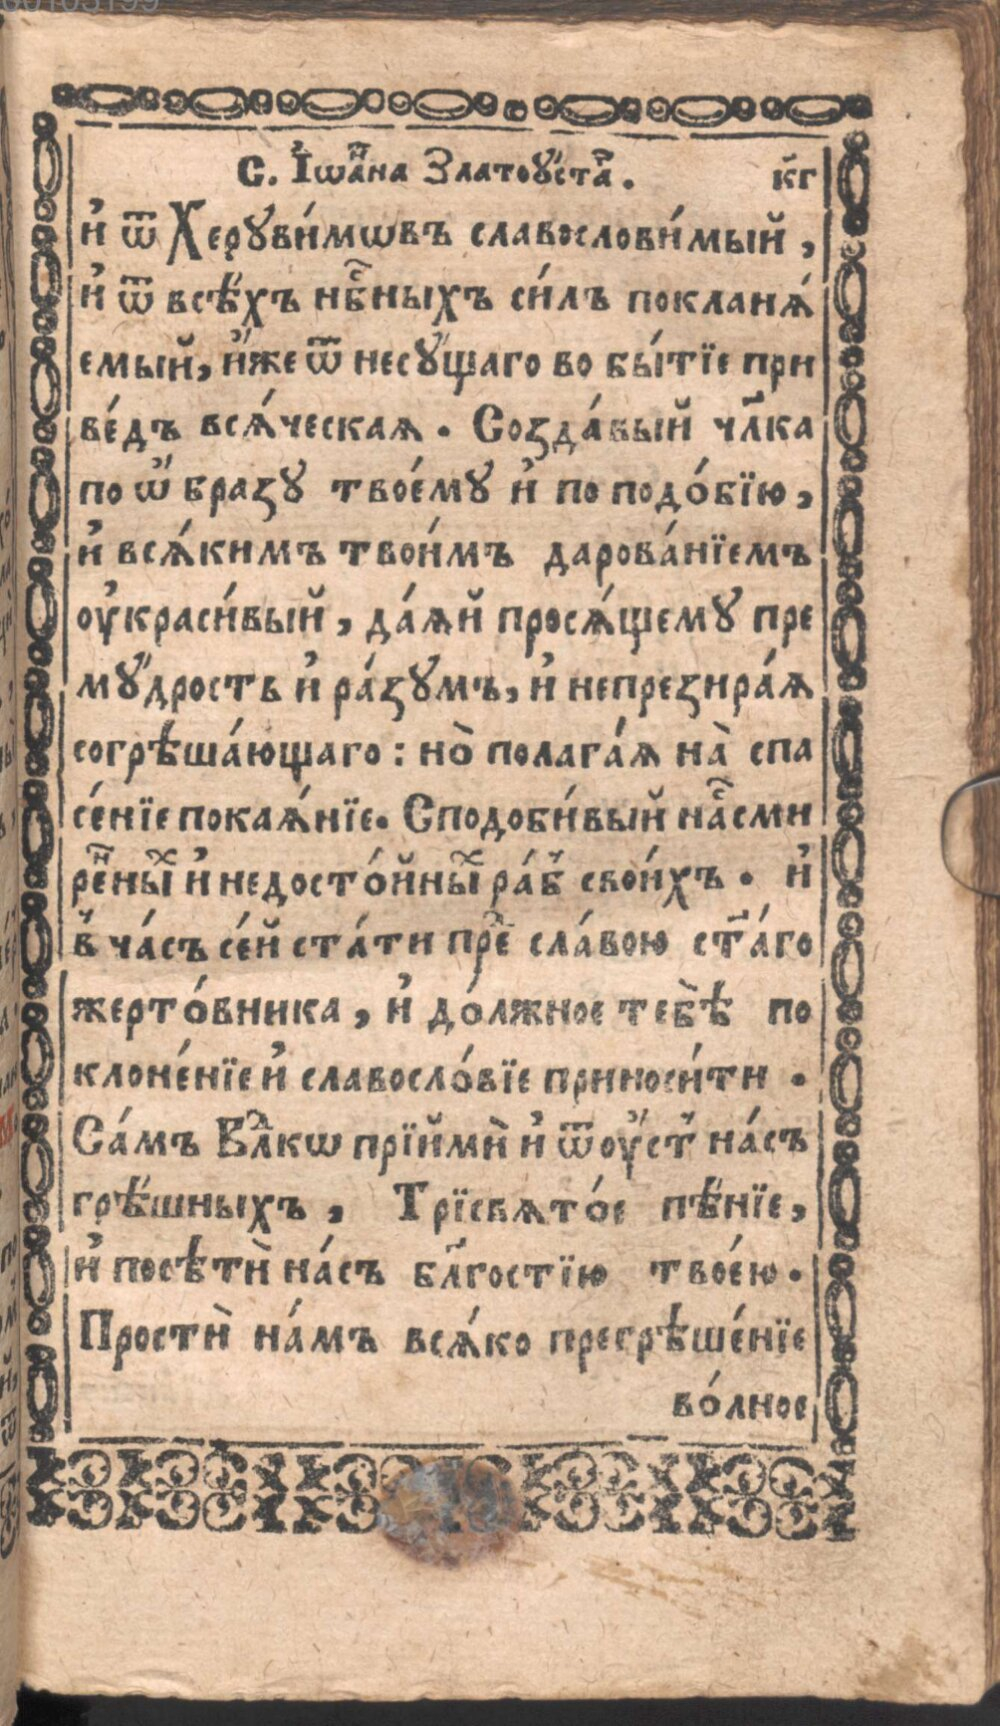 С. І҆ѡа́нна Златоꙋ́стаг. к҃г
И҆ ѿ Херꙋви́мѡвъ славослови́мый,
и҆ ѿ всѣ́хъ нб҃сныхъ си́лъ покланѧ́
емый, и҆́же ѿ несꙋ́щаго во бы́тїе при
ве́дъ всѧ́ческаѧ. Созда́вый чл҃ка
по ѡ҆́бразꙋ твое́мꙋ и҆ по подо́бїю,
и҆ всѧ́кимъ твои́мъ дарова́нїемъ
оу҆краси́вый, да́ѧй просѧ́щемꙋ пре
мꙋ́дрость и҆ ра́зꙋмъ, и҆ непрезира́ѧ
согрѣша́ющаго: но̀ полага́ѧ на̀ спа
се́нїе покаѧ́нїе. Сподоби́вый на́с сми
ре́нныⷯ и҆ недосто́йныⷯ ра́бъ свои́хъ. и҆
в̾ ча́съ се́й ста́ти пре́д сла́вою ст҃а́го
жерто́вника, и҆ до́лжное тебѣ̀ по
клоне́нїе и҆ славосло́вїе приноси́ти.
Са́мъ Вл҃дкѡ прїймѝ и҆ ѿ оу҆́стъ на́съ
грѣ́шныхъ, Трїсвято́е пѣ́нїе,
и҆ посѣтѝ на́съ бл҃гостїю твое́ю.
Простѝ на́мъ всѧ́ко прегрѣше́нїе
во́лное